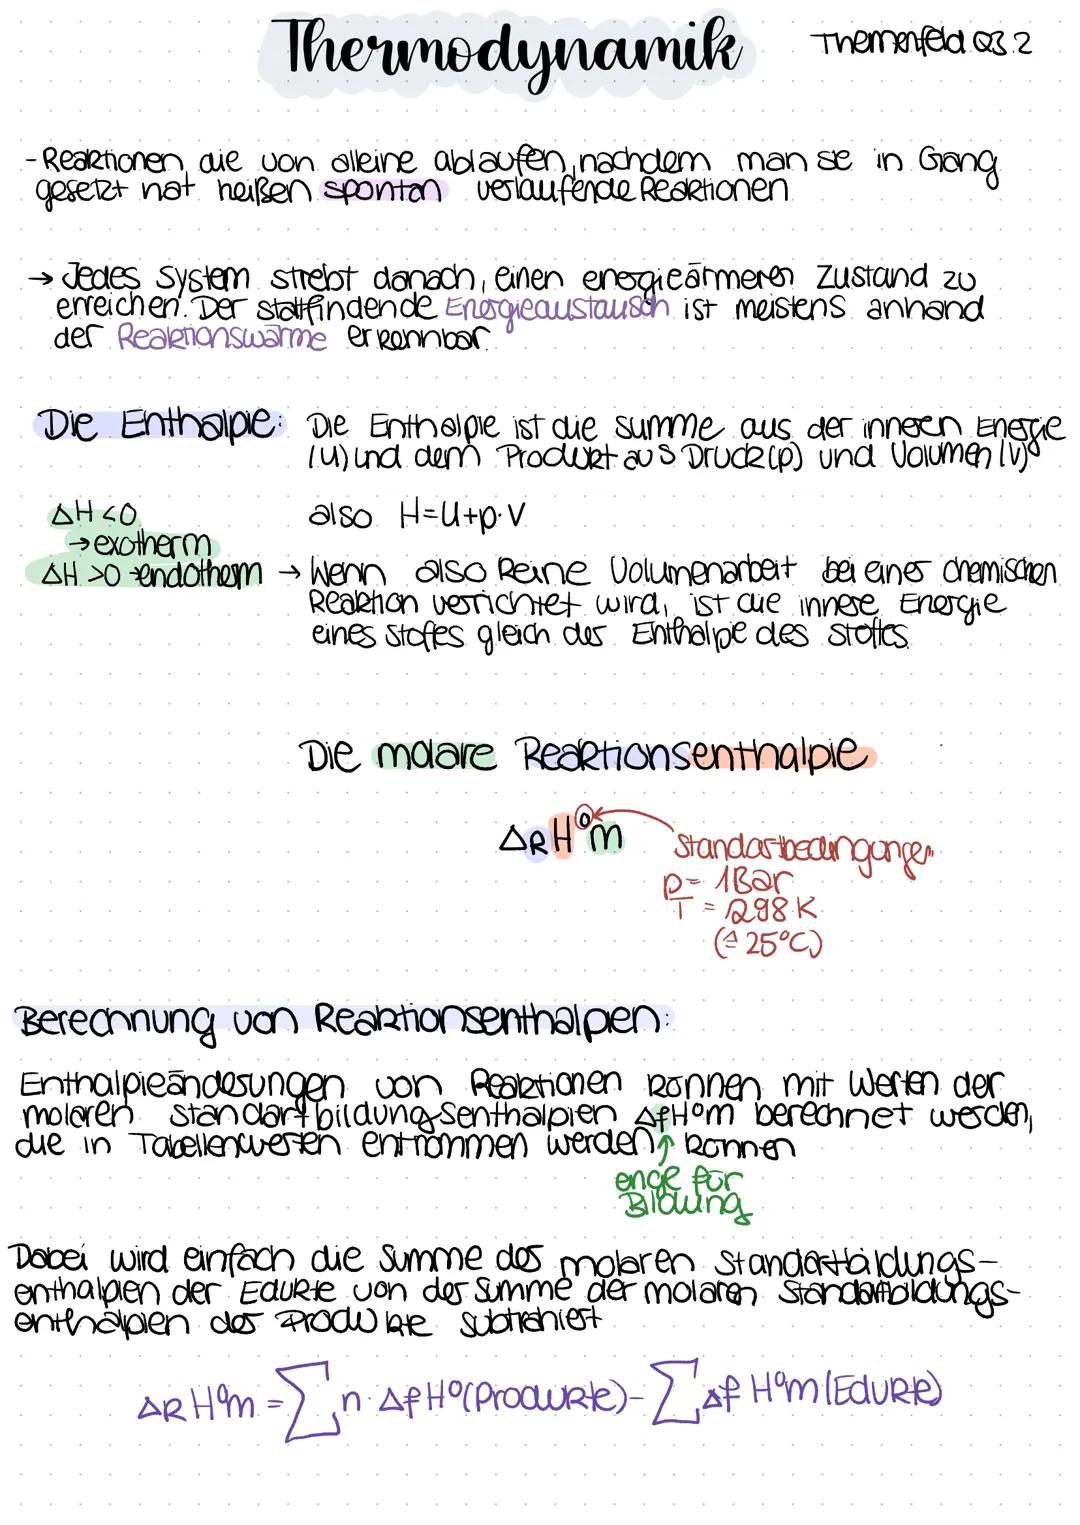 Thermodynamik
Themenfeld Q3.2
- Reaktionen, die von alleine ablaufen, nachdem man sie in Gang
gesetzt hat heißen spontan verlaufende Reaktionen
→ Jedes System strebt danach, einen energieärmeren Zustand zu
erreichen. Der stattfindende Energieaustausch ist meistens anhand
der Reaktionswärme erkennbar.
Die Enthalpie: Die Enthalpie ist die Summe aus der inneren Energie
(U) und dem Produkt aus Druck (p) und Volumen (V)
ΔH <0
→ exotherm
ΔH >0 → endotherm
also H=U+p·V
→ Wenn also keine Volumenarbeit bei einer chemischen
Reaktion verrichtet wird, ist die innere Energie
eines Stoffes gleich der Enthalpie des Stoffes.
Die molare Reaktionsenthalpie
ΔRH⁰m
Standartbedingungen
p = 1Bar
T = 298 K
(≙ 25°C)
Berechnung von Reaktionsenthalpen:
Enthalpieänderungen von Reaktionen können mit Werten der
molaren standartbildungsenthalpien ΔfH⁰m berechnet werden,
die in Tabellenwerten entnommen werden können
↑
engl für
Bildung
Dabei wird einfach die Summe der molaren Standartbildungs-
enthalpien der Edukte von der Summe der molaren Standartbildungs-
enthalpien der Produkte subtrahiert
ΔRH⁰m = ∑n·ΔfH⁰(Produkte)-∑ΔfH⁰m(Edukte)